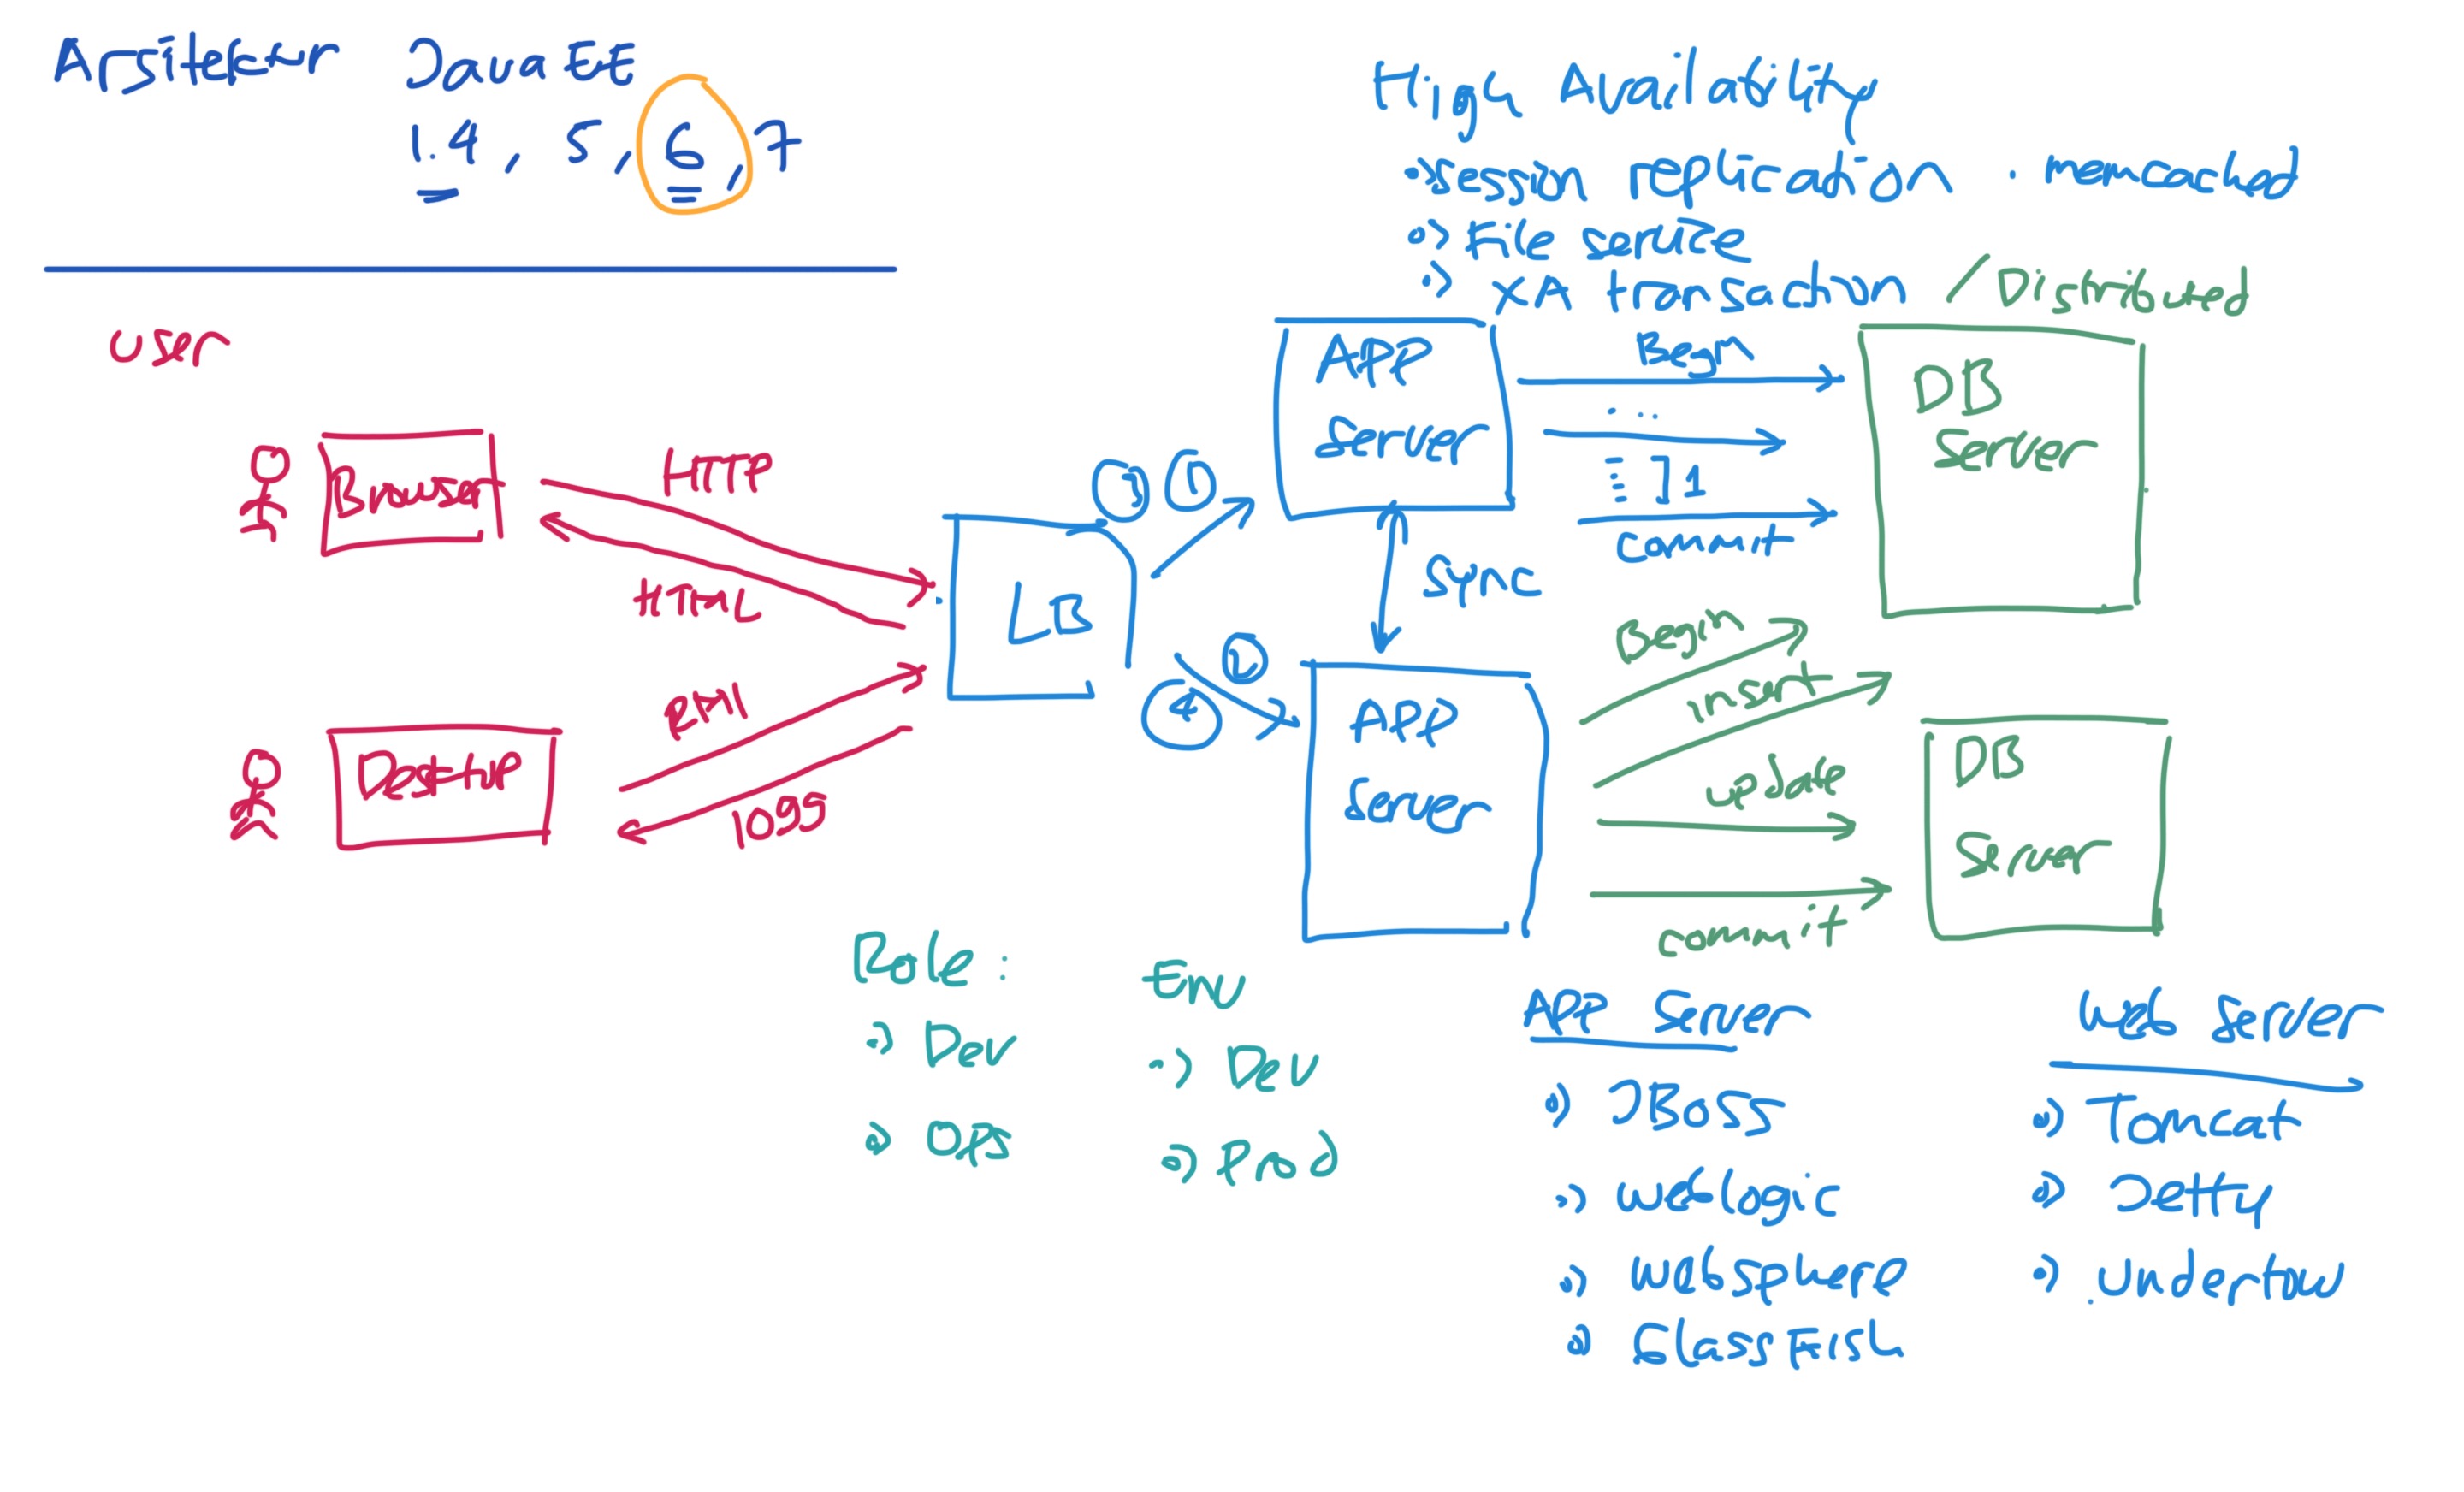 Arsitektur Java EE
1.4, 5, 6, 7
High Availability
Session replication . memcached
File service
XA transaction / Distributed
user
Browser
HTTP
HTML
Desktop
RMI
LB
3 1
2
4
APP
Server
Sync
APP
Server
Begin
...
commit
DB
Server
Begin
insert
update
commit
DB
Server
Role :
Dev
Ops
Env
Dev
Prod
APP Server
JBoss
weblogic
websphere
GlassFish
Web Server
Tomcat
Jetty
undertow